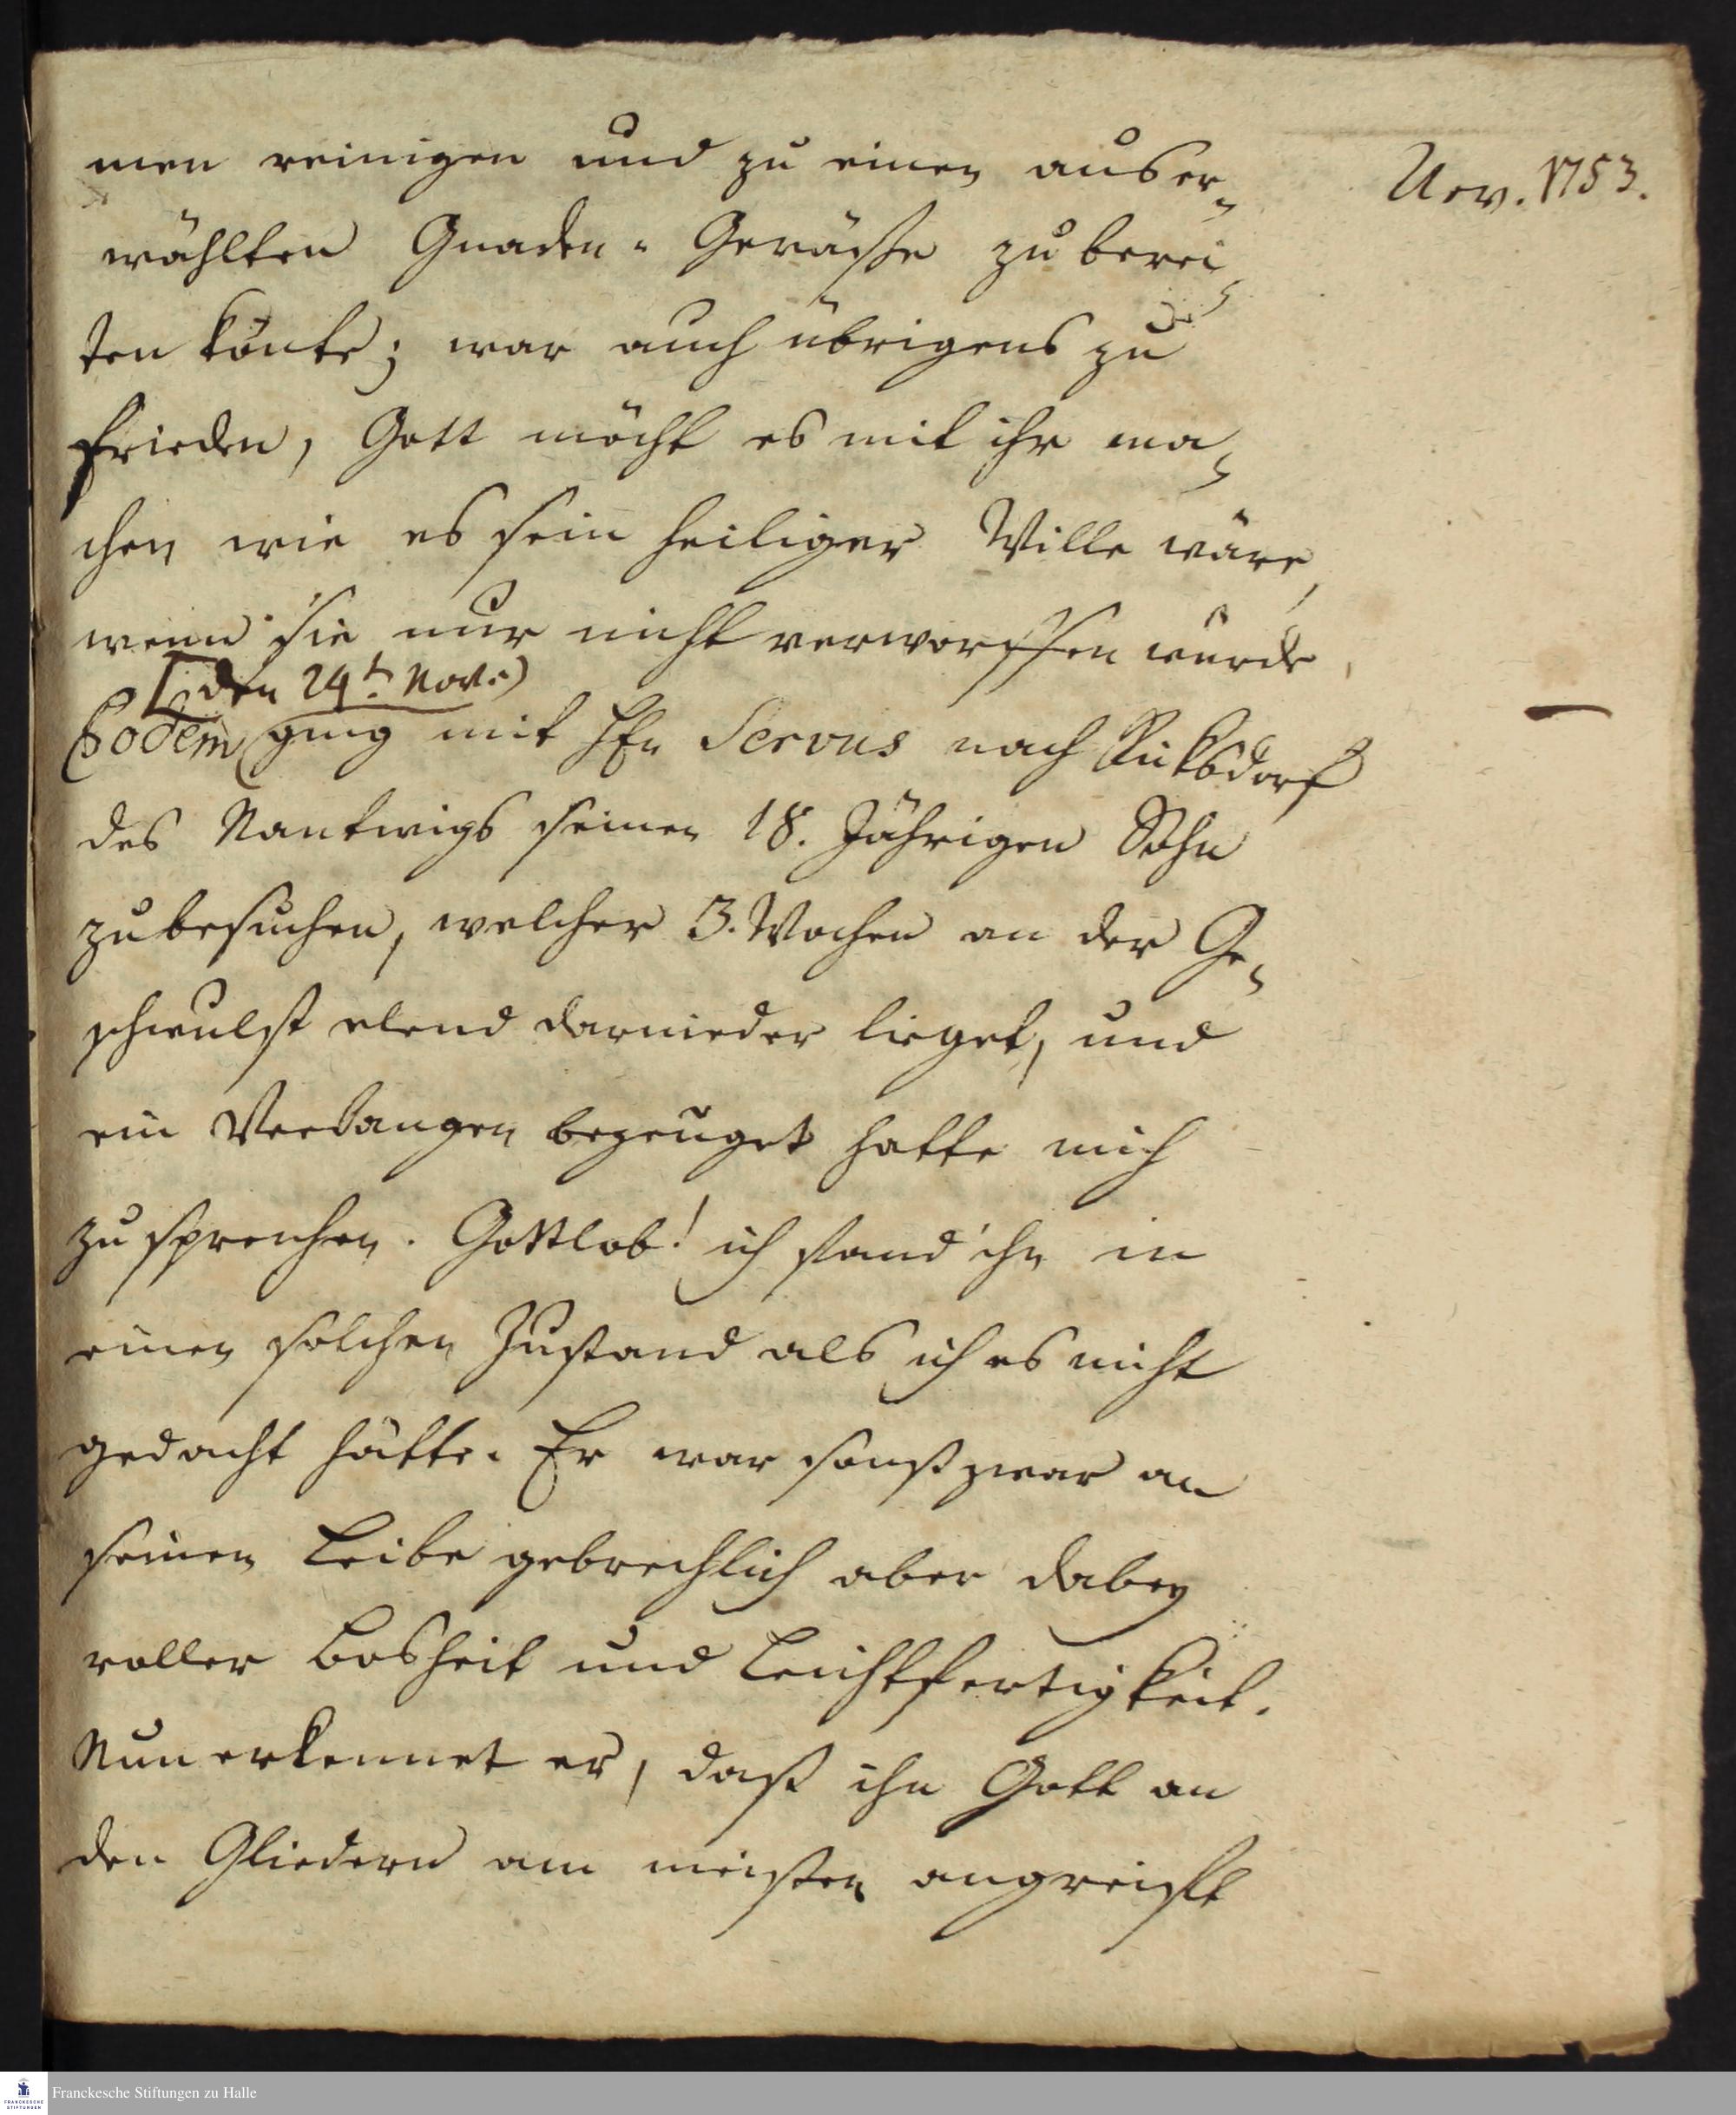 Nov. 1753.
men reinigen und zu einen auser-
wählten Gnaden-Gefässe zu berei-
ten könte; war auch übrigens zu
frieden, Gott möcht es mit ihr ma-
chen wie es sein heiliger Wille wäre,
wenn sie nur nicht verworffen würde,
[den 24t. Nov.)
Eodem ging mit H Servus nach Ricksdorf
des Nantwigs seinen 18. Jährigen Sohn
zu besuchen, welcher 3. Wochen an der Ge-
schwulst elend darnieder lieget, und
ein Verlangen bezeuget hatte mich
zu sprechen. Gottlob! ich fand ihn in
einen solchen Zustand als ich es nicht
gedacht hätte. Er war sonst zwar an
seinen Leibe gebrechlich aber dabey
voller Bosheit und Leichtfertigkeit.
Nun erkennet er, daß ihn Gott an
den Gliedern am meisten angreifft
Franckesche Stiftungen zu Halle